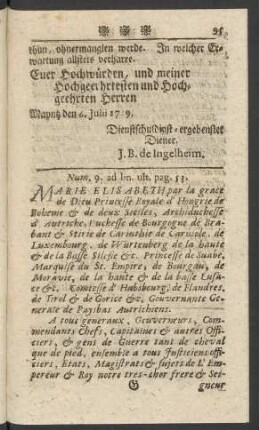 95
thun, ohnermanglen werde. In welcher Er-
wartung allstets verharre.
Euer Hochwürden, und meiner
Hochgeehrtesten und Hoch-
geehrten Herren
Mayntz den 6. Julii
Dienstschuldigst-ergebenster
Diener.
J. B. de Ingelheim.
Num. 9. ad lin. ult. pag. 53.
MARIE ELISABETH par la grace
de Dieu Princesse Royale d'Hongrie de
Boheme & de deux Siciles, Archiduchesse
d'Autriche, Duchesse de Bourgogne de Bra-
bant & Stirie de Carinthie de Carniole, de
Luxembourg, de Wurtenberg de la haute
& de la Basse Silesie &c. Princesse de Suabe,
Marquise du St. Empire, de Bourgau, de
Moravie, de la haute & de la basse Lusa-
ce &c. Comtesse d'Habsbourg, de Flandres,
de Tirol & de Gorice &c. Gouvernante Ge-
nerale de Paysbas Autrichiens.
A tous generaux, Gouverneurs, Com-
mendants Chefs, Capitaines & autres Offi-
ciers, & gens de Guerre tant de cheval
que de pied, ensemble a tous Justiciers offi-
ciers, Etats, Magistrats & sujets de L'Em-
pereur & Roy notre tres-cher frere & Sei-
G gneur